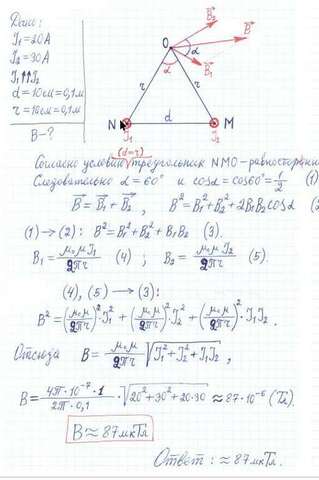 Дано:
I₁=20А
I₂=30А
I₁↑↑I₂
d=10см=0,1м
r=10см=0,1м
B-?
O
B₂
B
α
α
B₁
r
r
N
d
M
I₁
I₂
(d=r)
Согласно условию треугольник NMO-равносторонн
Следовательно α=60° и cosα=cos60°=1/2 (1)
B=B₁+B₂, B²=B₁²+B₂²+2B₁B₂cosα (2
(1)→(2): B²=B₁²+B₂²+B₁B₂ (3).
B₁=μ₀μI₁/2πr (4); B₂=μ₀μI₂/2πr (5).
(4),(5)→(3):
B²=(μ₀μ/2πr)²·I₁²+(μ₀μ/2πr)²·I₂²+(μ₀μ/2πr)²·I₁I₂,
Отсюда B=μ₀μ/2πr √I₁²+I₂²+I₁I₂,
B=4π·10⁻⁷·1/2π·0,1·√20²+30²+20·30≈87·10⁻⁶(Тл).
B≈87мкТл
Ответ: ≈87мкТл.